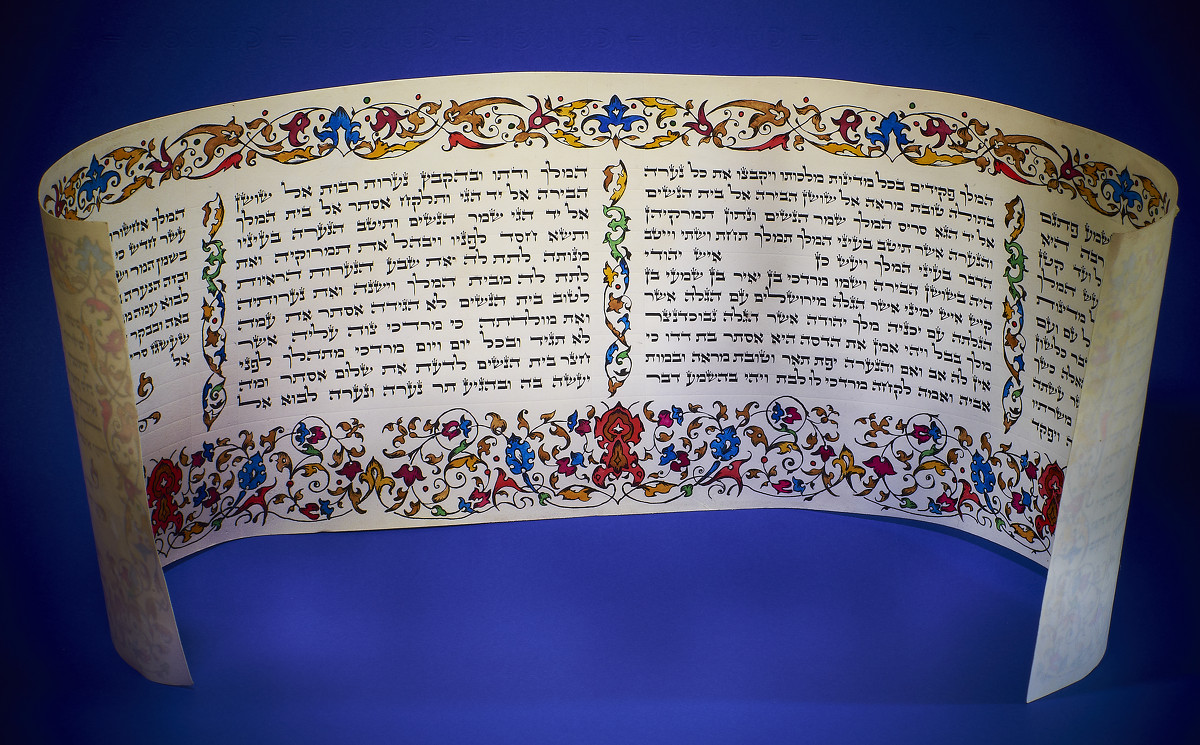 פתגם
רבה היא
ועד קטן
המלך
עם ועם
כלשון
עשתה
משרתיו
ויפקד
המלך פקידים בכל מדינות מלכותו ויקבצו את כל נערה
בתולה טובת מראה אל שושן הבירה אל בית הנשים
אל יד הגא סריס המלך שמר הנשים ונתון תמרקיהן
והנערה אשר תיטב בעיני המלך תמלך תחת ושתי וייטב
הדבר בעיני המלך ויעש כן איש יהודי
היה בשושן הבירה ושמו מרדכי בן יאיר בן שמעי בן
קיש איש ימיני אשר הגלה מירושלים עם הגלה אשר
הגלתה עם יכניה מלך יהודה אשר הגלה נבוכדנצר
מלך בבל ויהי אמן את הדסה היא אסתר בת דדו כי
אין לה אב ואם והנערה יפת תאר וטובת מראה ובמות
אביה ואמה לקחה מרדכי לו לבת ויהי בהשמע דבר
המלך ודתו ובהקבץ נערות רבות אל שושן
הבירה אל יד הגי ותלקח אסתר אל בית המלך
אל יד הגי שמר הנשים ותיטב הנערה בעיניו
ותשא חסד לפניו ויבהל את תמרוקיה ואת
מנותה לתת לה ואת שבע הנערות הראיות
לתת לה מבית המלך וישנה ואת נערותיה
לטוב בית הנשים לא הגידה אסתר את עמה
ואת מולדתה כי מרדכי צוה עליה אשר
לא תגיד ובכל יום ויום מרדכי מתהלך לפני
חצר בית הנשים לדעת את שלום אסתר ומה
יעשה בה ובהגיע תר נערה ונערה לבוא אל
המלך אחשורו
עשר חדש
בשמן המר
ובזה הנערה
לבוא
באה ובבקר
שעשגז
אל